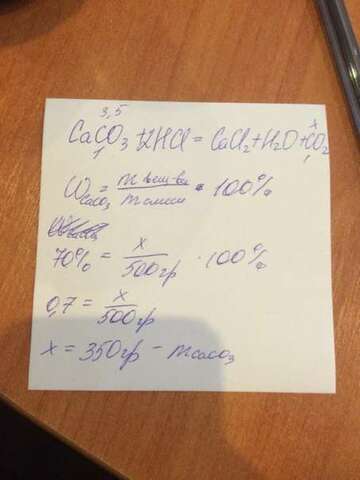 3,5 x
CaCO3 + 2HCl = CaCl2 + H2O + CO2
1 1
ωCaCO3 = m вещ-ва / m смеси • 100%
70% = x / 500гр · 100%
0,7 = x / 500гр
x = 350гр - mCaCO3